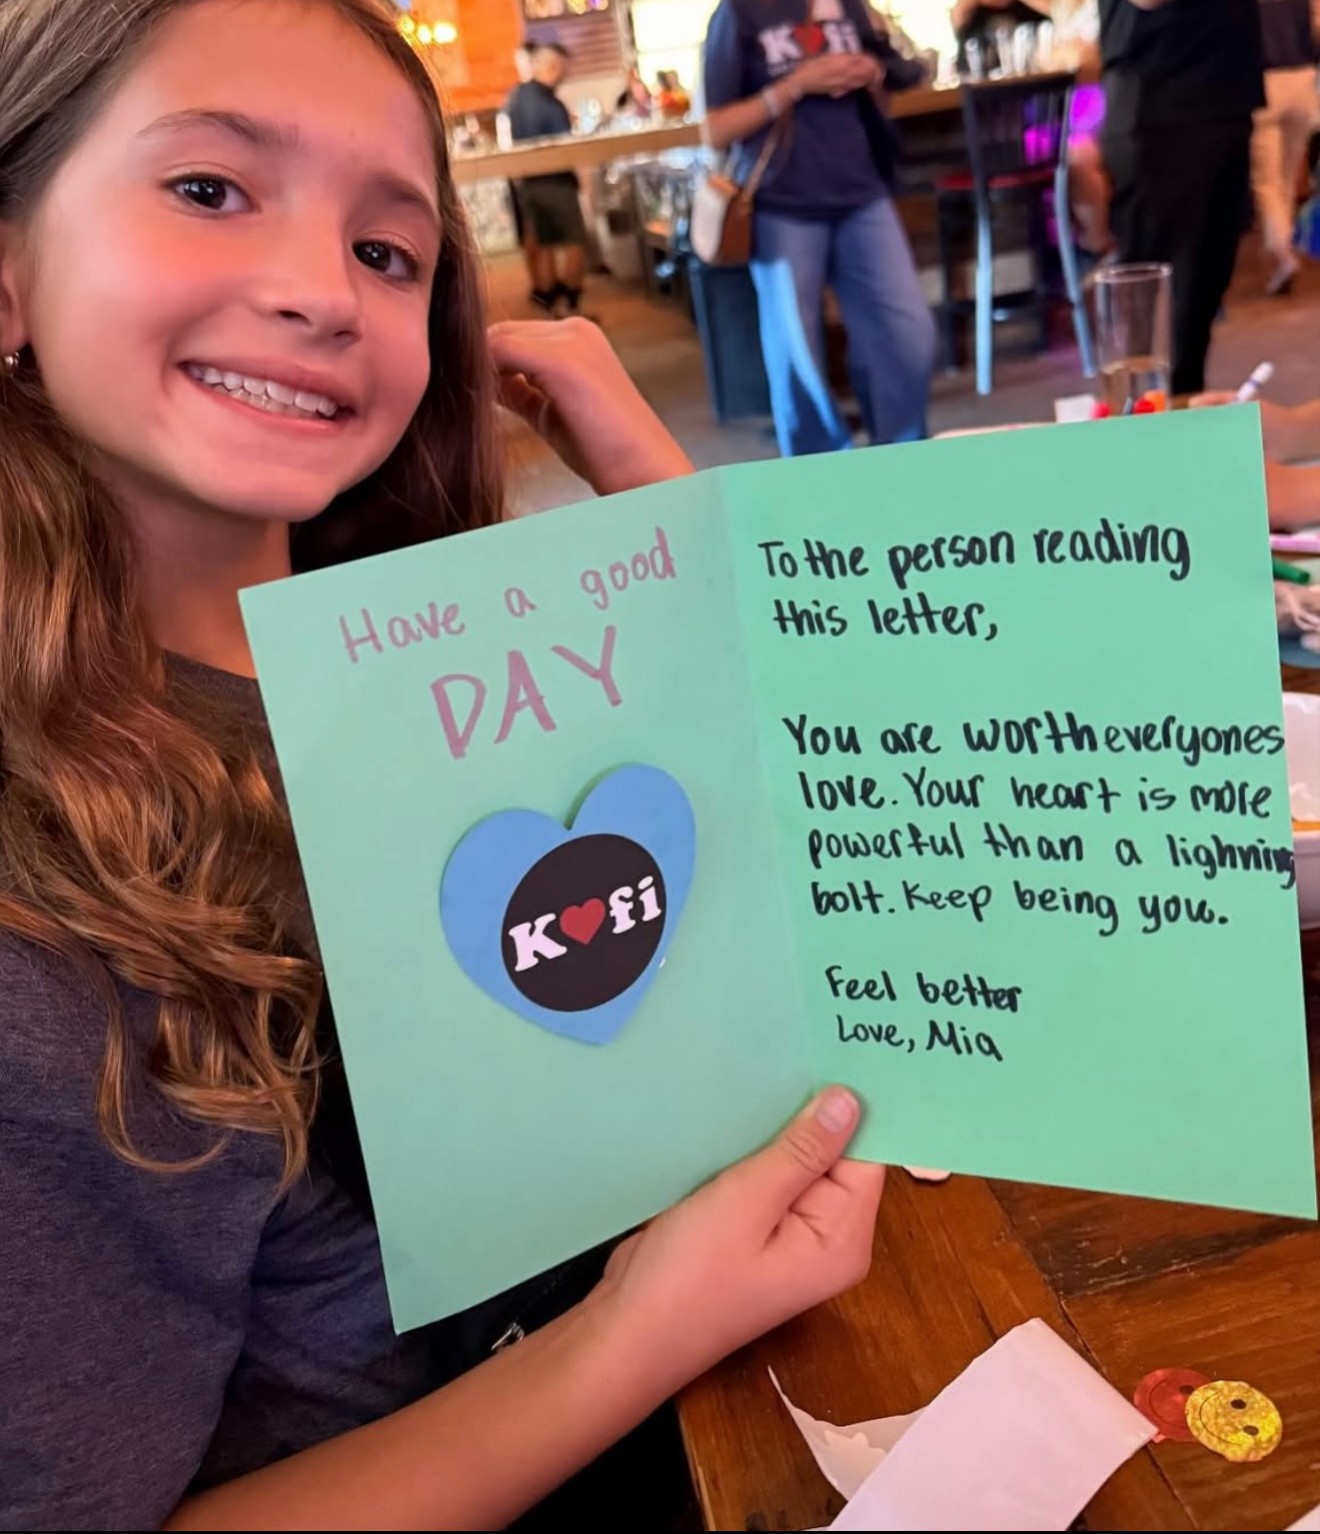 K♥fi
Have a good
DAY
K♥fi
To the person reading
this letter,
You are worth everyones
love. Your heart is more
powerful than a lighning
bolt. Keep being you.
Feel better
Love, Mia